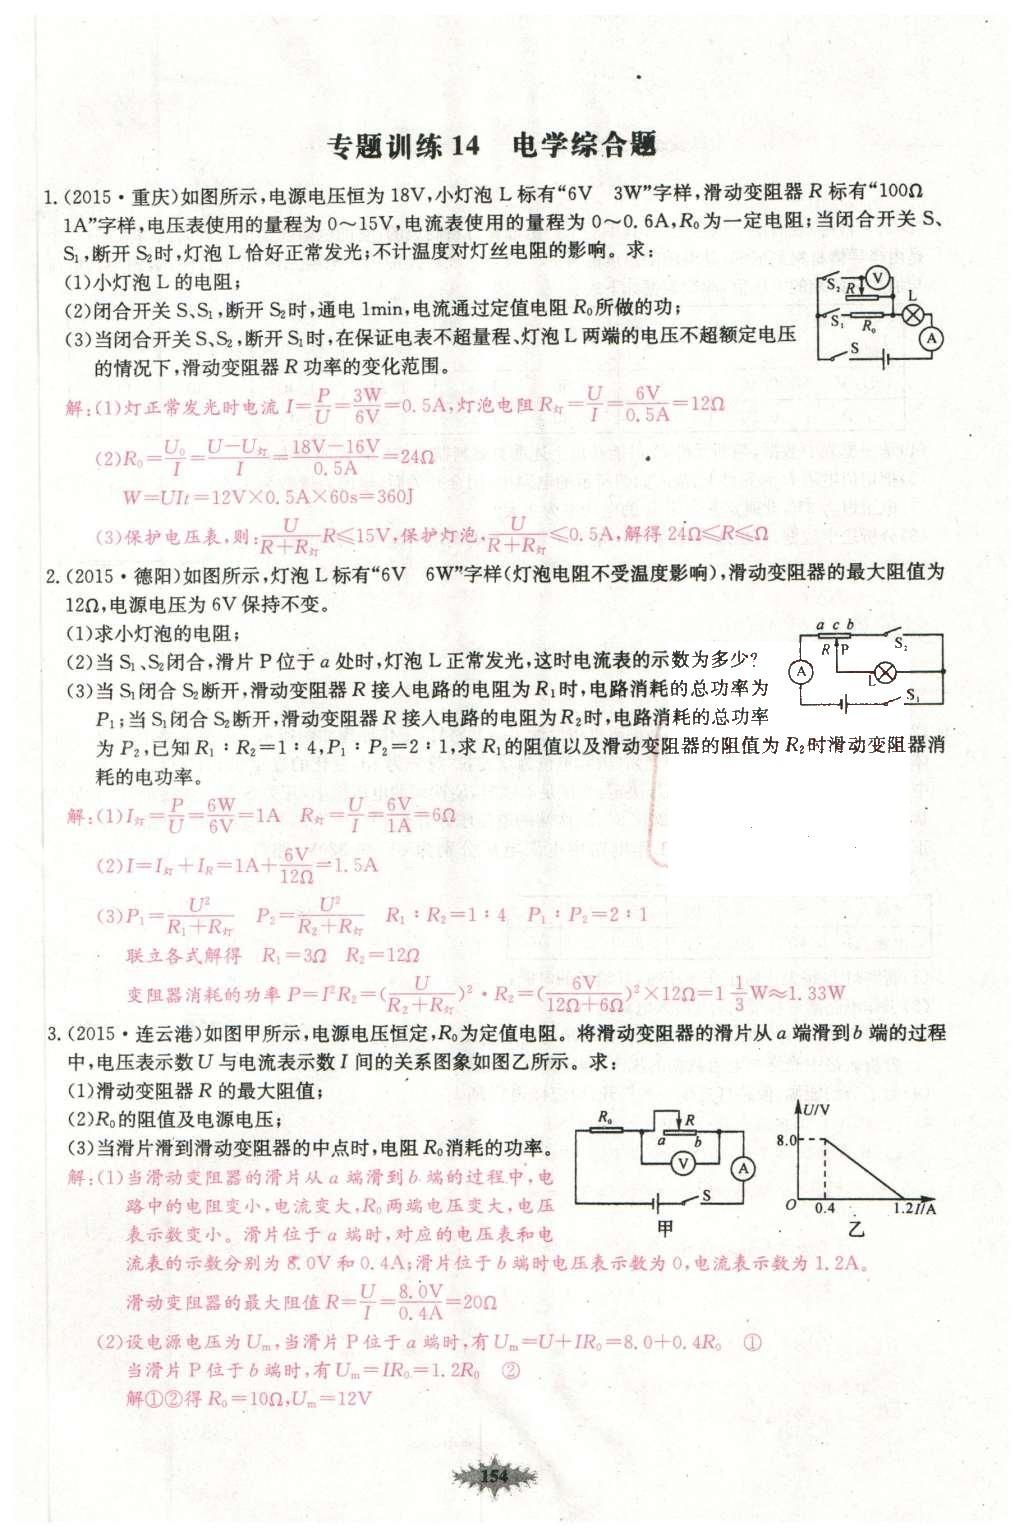 专题训练14 电学综合题
1.(2015·重庆)如图所示,电源电压恒为18V,小灯泡L标有“6V 3W”字样,滑动变阻器R标有“100Ω
1A”字样,电压表使用的量程为0～15V,电流表使用的量程为0～0.6A,R₀为一定电阻;当闭合开关S、
S₁,断开S₂时,灯泡L恰好正常发光;不计温度对灯丝电阻的影响。求:
(1)小灯泡L的电阻;
(2)闭合开关S、S₁,断开S₂时,通电1min,电流通过定值电阻R₀所做的功;
(3)当闭合开关S、S₂,断开S₁时,在保证电表不超量程、灯泡L两端的电压不超额定电压
的情况下,滑动变阻器R功率的变化范围。
S₂ R V L
S₁ R₀ A
S
解:(1)灯正常发光时电流I=P/U=3W/6V=0.5A,灯泡电阻R灯=U/I=6V/0.5A=12Ω
(2)R₀=U₀/I=(U-U灯)/I=(18V-16V)/0.5A=24Ω
W=UIt=12V×0.5A×60s=360J
(3)保护电压表,则:U/(R+R灯)R≤15V,保护灯泡,U/(R+R灯)≤0.5A,解得24Ω≤R≤Ω
2.(2015·德阳)如图所示,灯泡L标有“6V 6W”字样(灯泡电阻不受温度影响),滑动变阻器的最大阻值为
12Ω,电源电压为6V保持不变。
(1)求小灯泡的电阻;
(2)当S₁、S₂闭合,滑片P位于a处时,灯泡L正常发光,这时电流表的示数为多少?
(3)当S₁闭合S₂断开,滑动变阻器R接入电路的电阻为R₁时,电路消耗的总功率为
P₁;当S₁闭合S₂断开,滑动变阻器R接入电路的电阻为R₂时,电路消耗的总功率
为P₂,已知R₁:R₂=1:4,P₁:P₂=2:1,求R₁的阻值以及滑动变阻器的阻值为R₂时滑动变阻器消
耗的电功率。
a c b
R P S₂
A L
S₁
解:(1)I灯=P/U=6W/6V=1A R灯=U/I=6V/1A=6Ω
(2)I=I灯+I_R=1A+6V/12Ω=1.5A
(3)P₁=U²/(R₁+R灯) P₂=U²/(R₂+R灯) R₁:R₂=1:4 P₁:P₂=2:1
联立各式解得 R₁=3Ω R₂=12Ω
变阻器消耗的功率P=I²R₂=(U/(R₂+R灯))²·R₂=(6V/(12Ω+6Ω))²×12Ω=1 1/3W≈1.33W
3.(2015·连云港)如图甲所示,电源电压恒定,R₀为定值电阻。将滑动变阻器的滑片从a端滑到b端的过程
中,电压表示数U与电流表示数I间的关系图象如图乙所示。求:
(1)滑动变阻器R的最大阻值;
(2)R₀的阻值及电源电压;
(3)当滑片滑到滑动变阻器的中点时,电阻R₀消耗的功率。
R₀ R
a b
V A
S
甲
U/V
8.0
O 0.4 1.2 I/A
乙
解:(1)当滑动变阻器的滑片从a端滑到b端的过程中,电
路中的电阻变小,电流变大,R₀两端电压变大,电压
表示数变小。滑片位于a端时,对应的电压表和电
流表的示数分别为8.0V和0.4A;滑片位于b端时电压表示数为0,电流表示数为1.2A。
滑动变阻器的最大阻值R=U/I=8.0V/0.4A=20Ω
(2)设电源电压为Uₘ,当滑片P位于a端时,有Uₘ=U+IR₀=8.0+0.4R₀ ①
当滑片P位于b端时,有Uₘ=IR₀=1.2R₀ ②
解①②得R₀=10Ω,Uₘ=12V
154